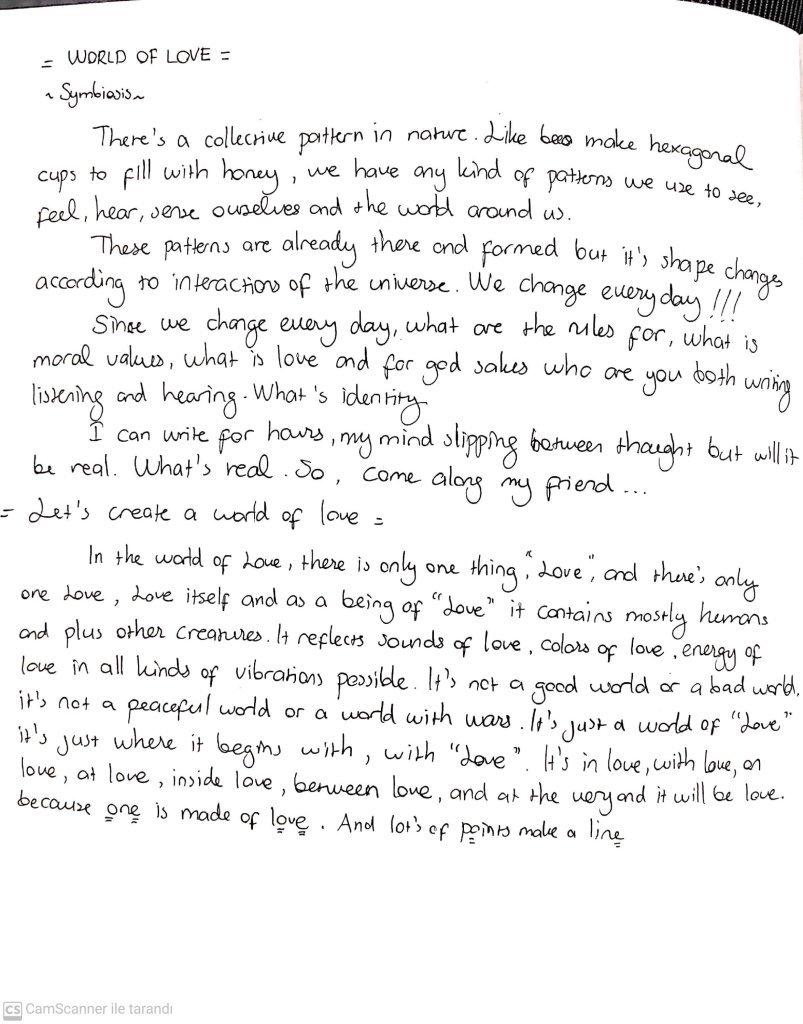 = WORLD OF LOVE =
~ Symbiosis ~
There's a collective pattern in nature. Like bees make hexagonal
cups to fill with honey, we have any kind of patterns we use to see,
feel, hear, sense ouselves and the world around us.
These patterns are already there and formed but it's shape changes
according to interactions of the universe. We change every day!!!
Since we change every day, what are the rules for, what is
moral values, what is love and for god sakes who are you both writing
listening and hearing. What's identity
I can write for hours, my mind slipping between thought but will it
be real. What's real. So, come along my friend...
= Let's create a world of love =
In the world of Love, there is only one thing, "Love", and there's only
one Love, Love itself and as a being of "Love" it contains mostly humans
and plus other creatures. It reflects sounds of love, colors of love, energy of
love in all kinds of vibrations possible. It's not a good world or a bad world,
it's not a peaceful world or a world with wars. It's just a world of "Love"
it's just where it begins with, with "Love". It's in love, with love, on
love, at love, inside love, between love, and at the very end it will be love.
because one is made of love. And lot's of points make a line
CS CamScanner ile tarandı